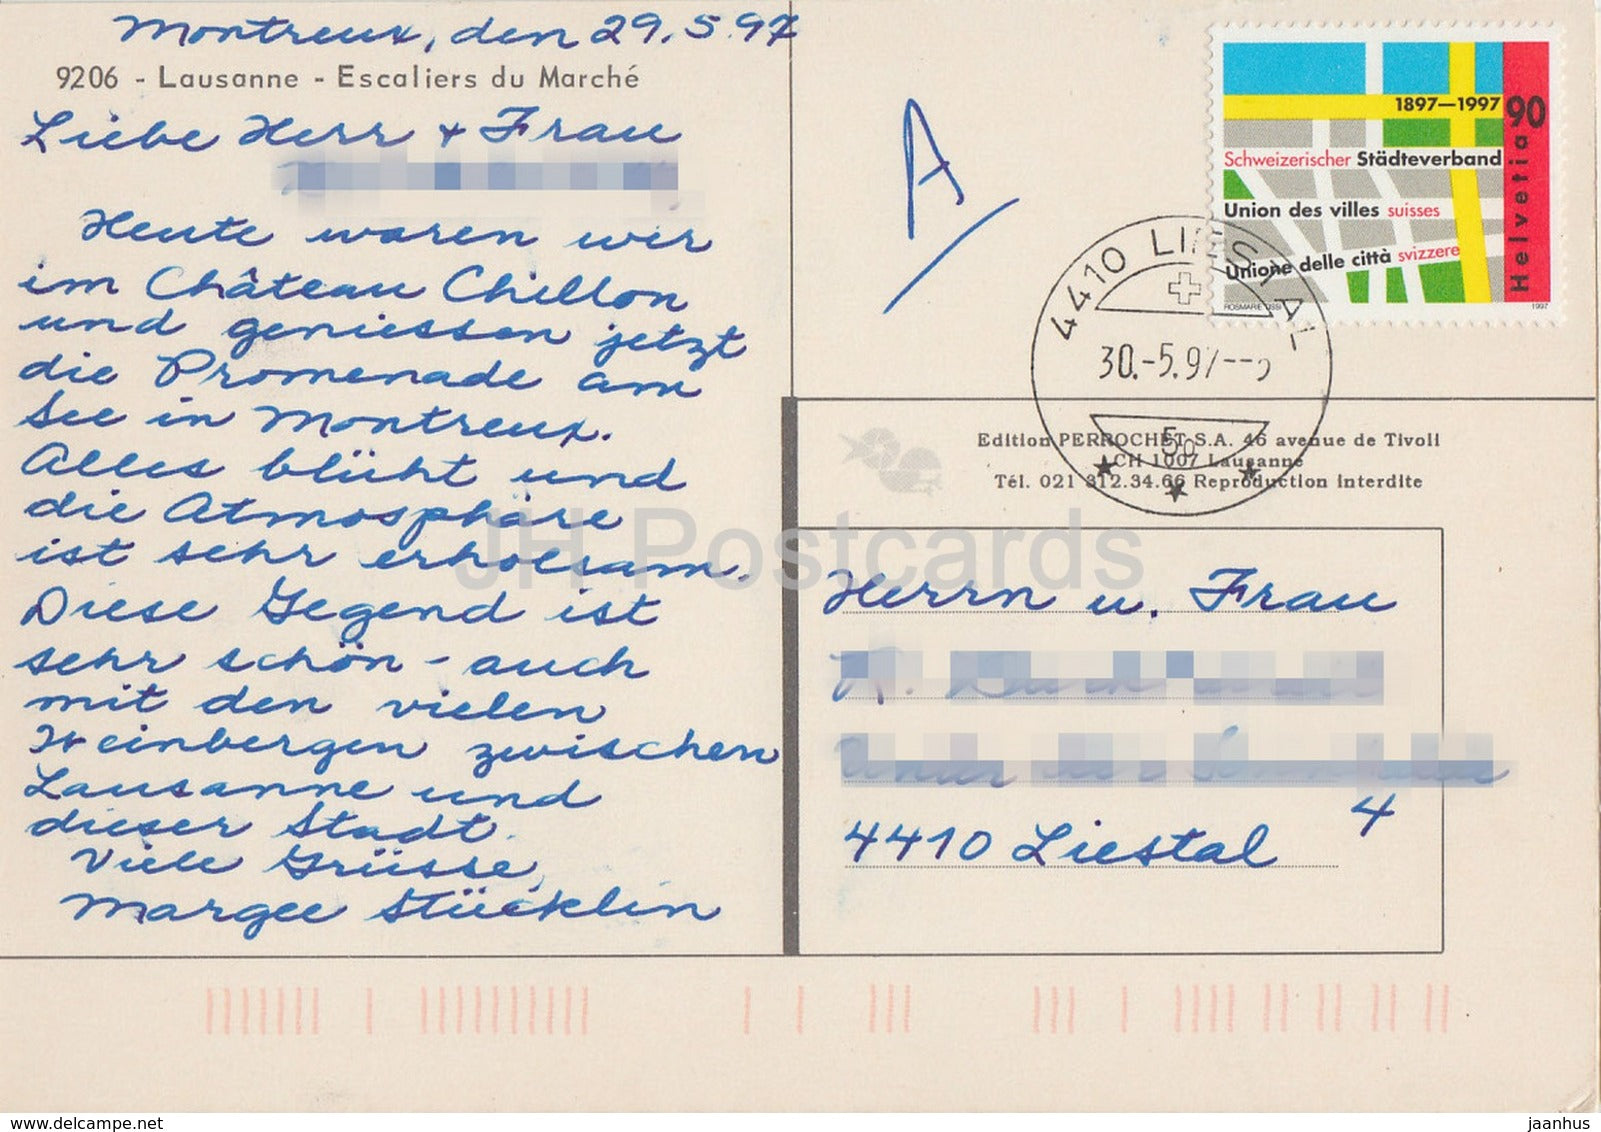 Montreux, den 29.5.97
9206 - Lausanne - Escaliers du Marché
Liebe Herr + Frau
Heute waren wir
im Château Chillon
und geniessen jetzt
die Promenade am
See in Montreux.
Alles blüht und
die Atmosphäre
ist sehr erholsam.
Diese Gegend ist
sehr schön - auch
mit den vielen
Weinbergen zwischen
Lausanne und
dieser Stadt.
Viele Grüsse,
Margee Stücklin
A
1897—1997 90
Schweizerischer Städteverband
Union des villes suisses
Unione delle città svizzere
Helvetia
ROSMARIE 1997
4410 LIESTAL
30.-5.97
50
Edition PERROCHET S.A. 46 avenue de Tivoli
CH 1007 Lausanne
Tél. 021 312.34.66 Reproduction interdite
JH Postcards
Herrn u. Frau
4
4410 Liestal
www.delcampe.net
jaanhus